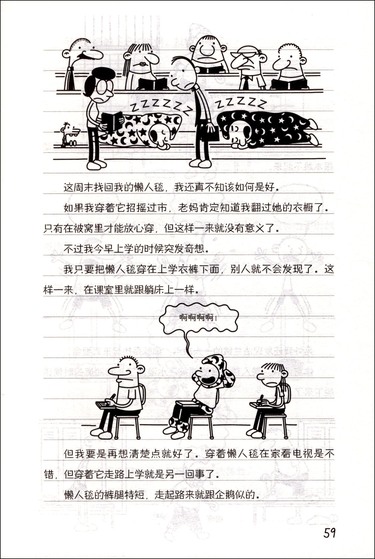 ZZZZZZ
ZZZZZ
这周末找回我的懒人毯，我还真不知该如何是好。
如果我穿着它招摇过市，老妈肯定知道我翻过她的衣橱了。
只有在被窝里才能放心穿，但这样一来就没有意义了。
不过我今早上学的时候突发奇想。
我只要把懒人毯穿在上学衣裤下面，别人就不会发现了。这
样一来，在课室里就跟躺床上一样。
啊啊啊啊！
但我要是再想清楚点就好了。穿着懒人毯在家看电视是不
错，但穿着它走路上学就是另一回事了。
懒人毯的裤腿特短，走起路来就跟企鹅似的。
59